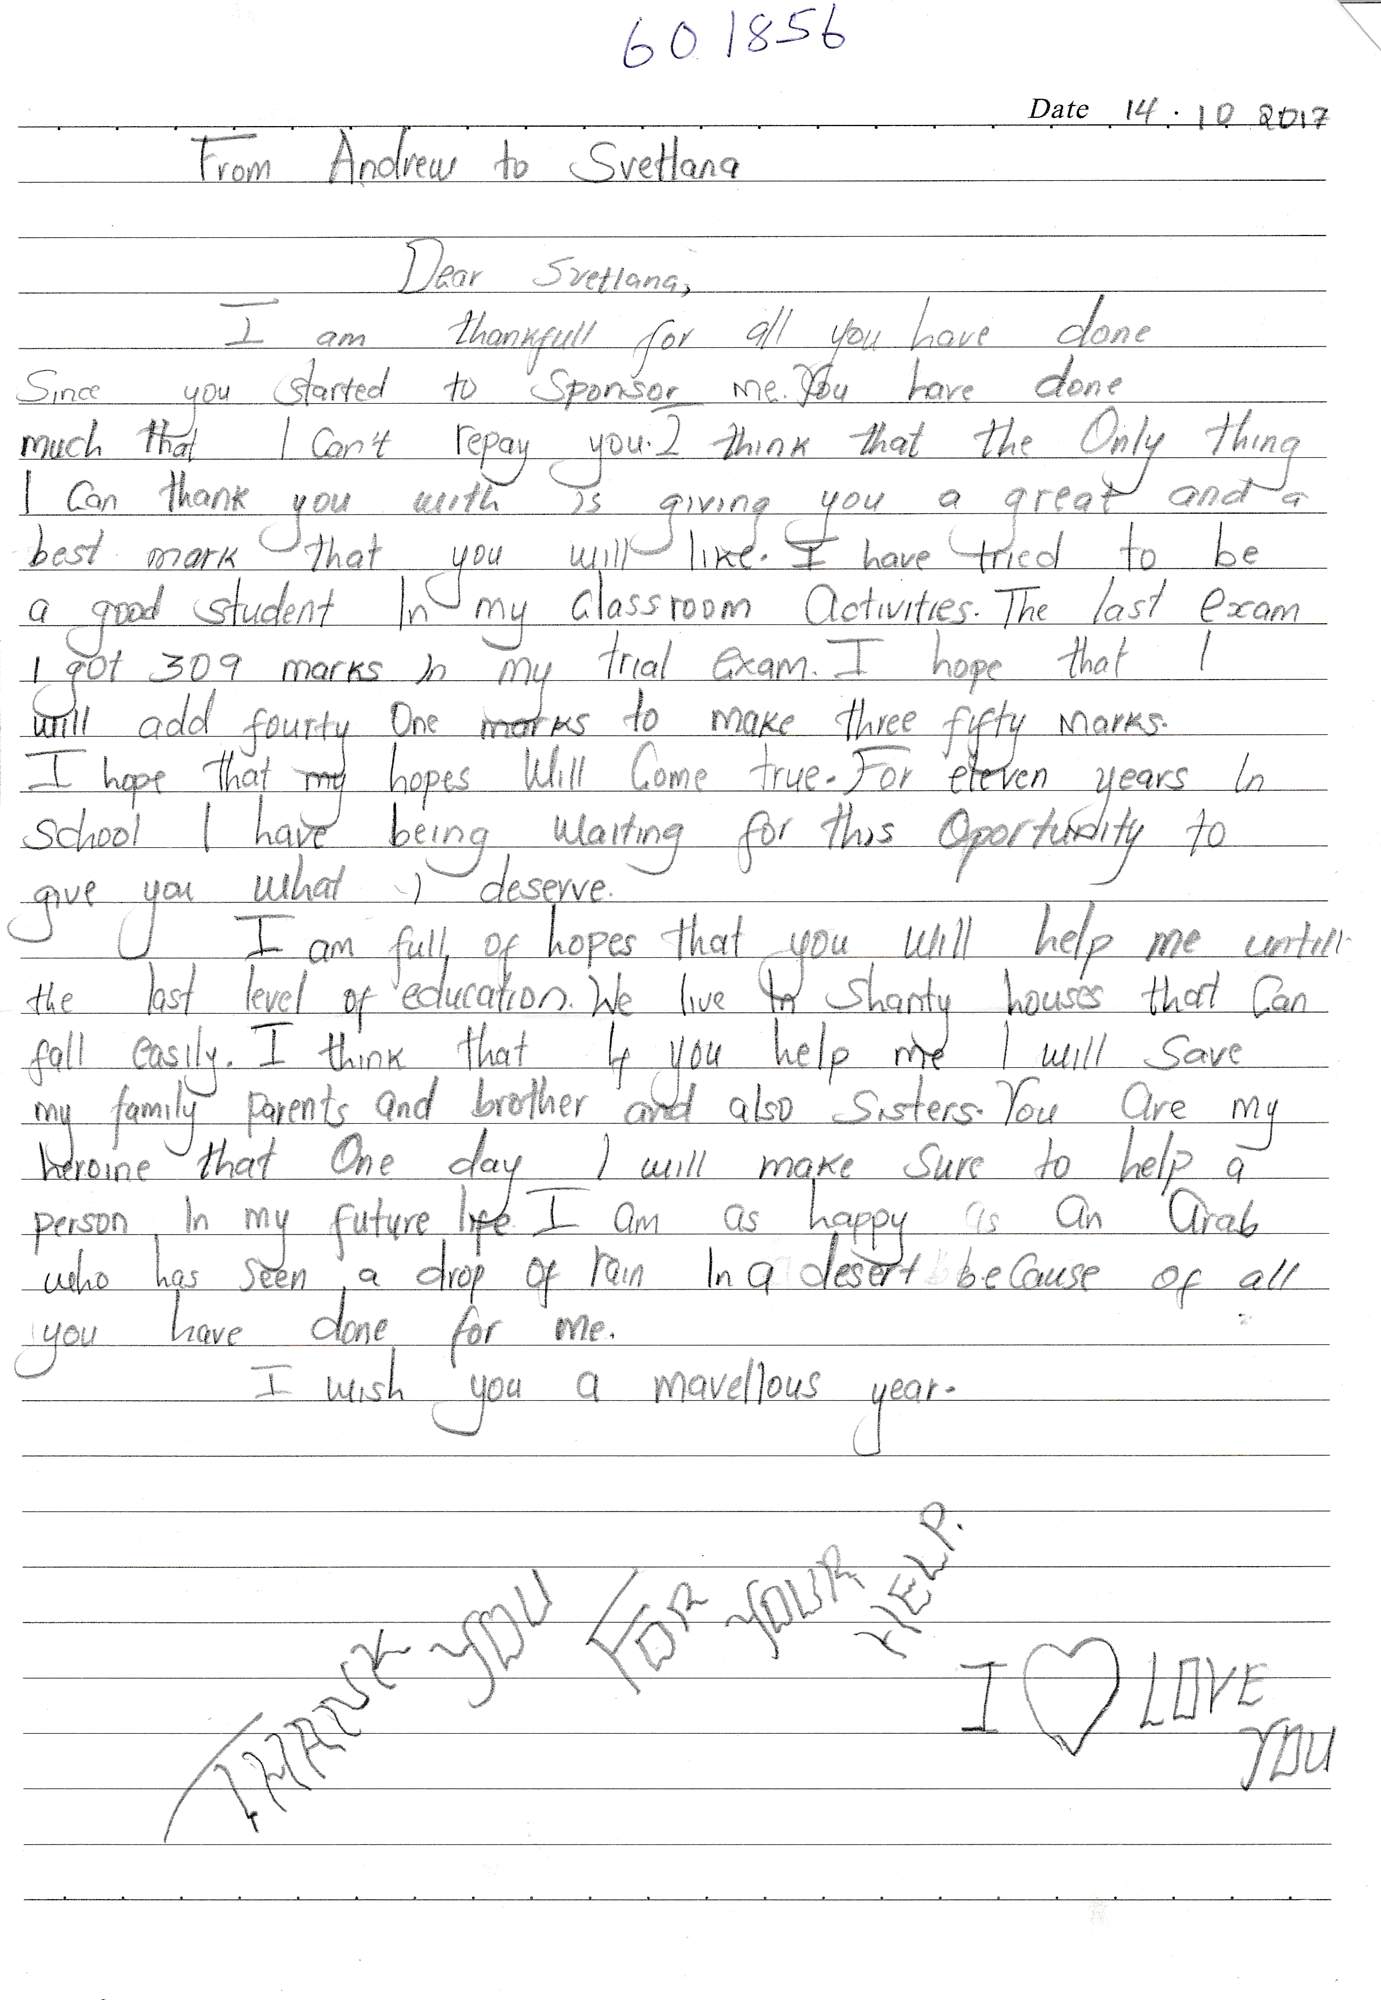 601856
Date 14.10 2017
From Andrew to Svetlana
Dear Svetlana,
I am thankfull for all you have done
Since you started to Sponsor me. You have done
much that I Can't repay you. I think that the Only thing
I Can thank you with is giving you a great and a
best mark that you will like. I have tried to be
a good student In my Classroom Activities. The last exam
I got 309 marks in my trial Exam. I hope that I
will add fourty One marks to make three fifty Marks.
I hope that my hopes Will Come true. For eleven years In
School I have being waiting for this Oportunity to
give you what I deserve.
I am full of hopes that you Will help me untill
the last level of education. We live In Shanty houses that Can
fall easily. I think that If you help me I will Save
my family parents and brother and also Sisters. You Are my
heroine that One day I will make Sure to help a
person In my future life I am as happy as An Arab
who has seen a drop of rain In a desert because of all
you have done for me.
I wish you a mavellous year.
THANK YOU FOR YOUR HELP.
I LOVE
YOU